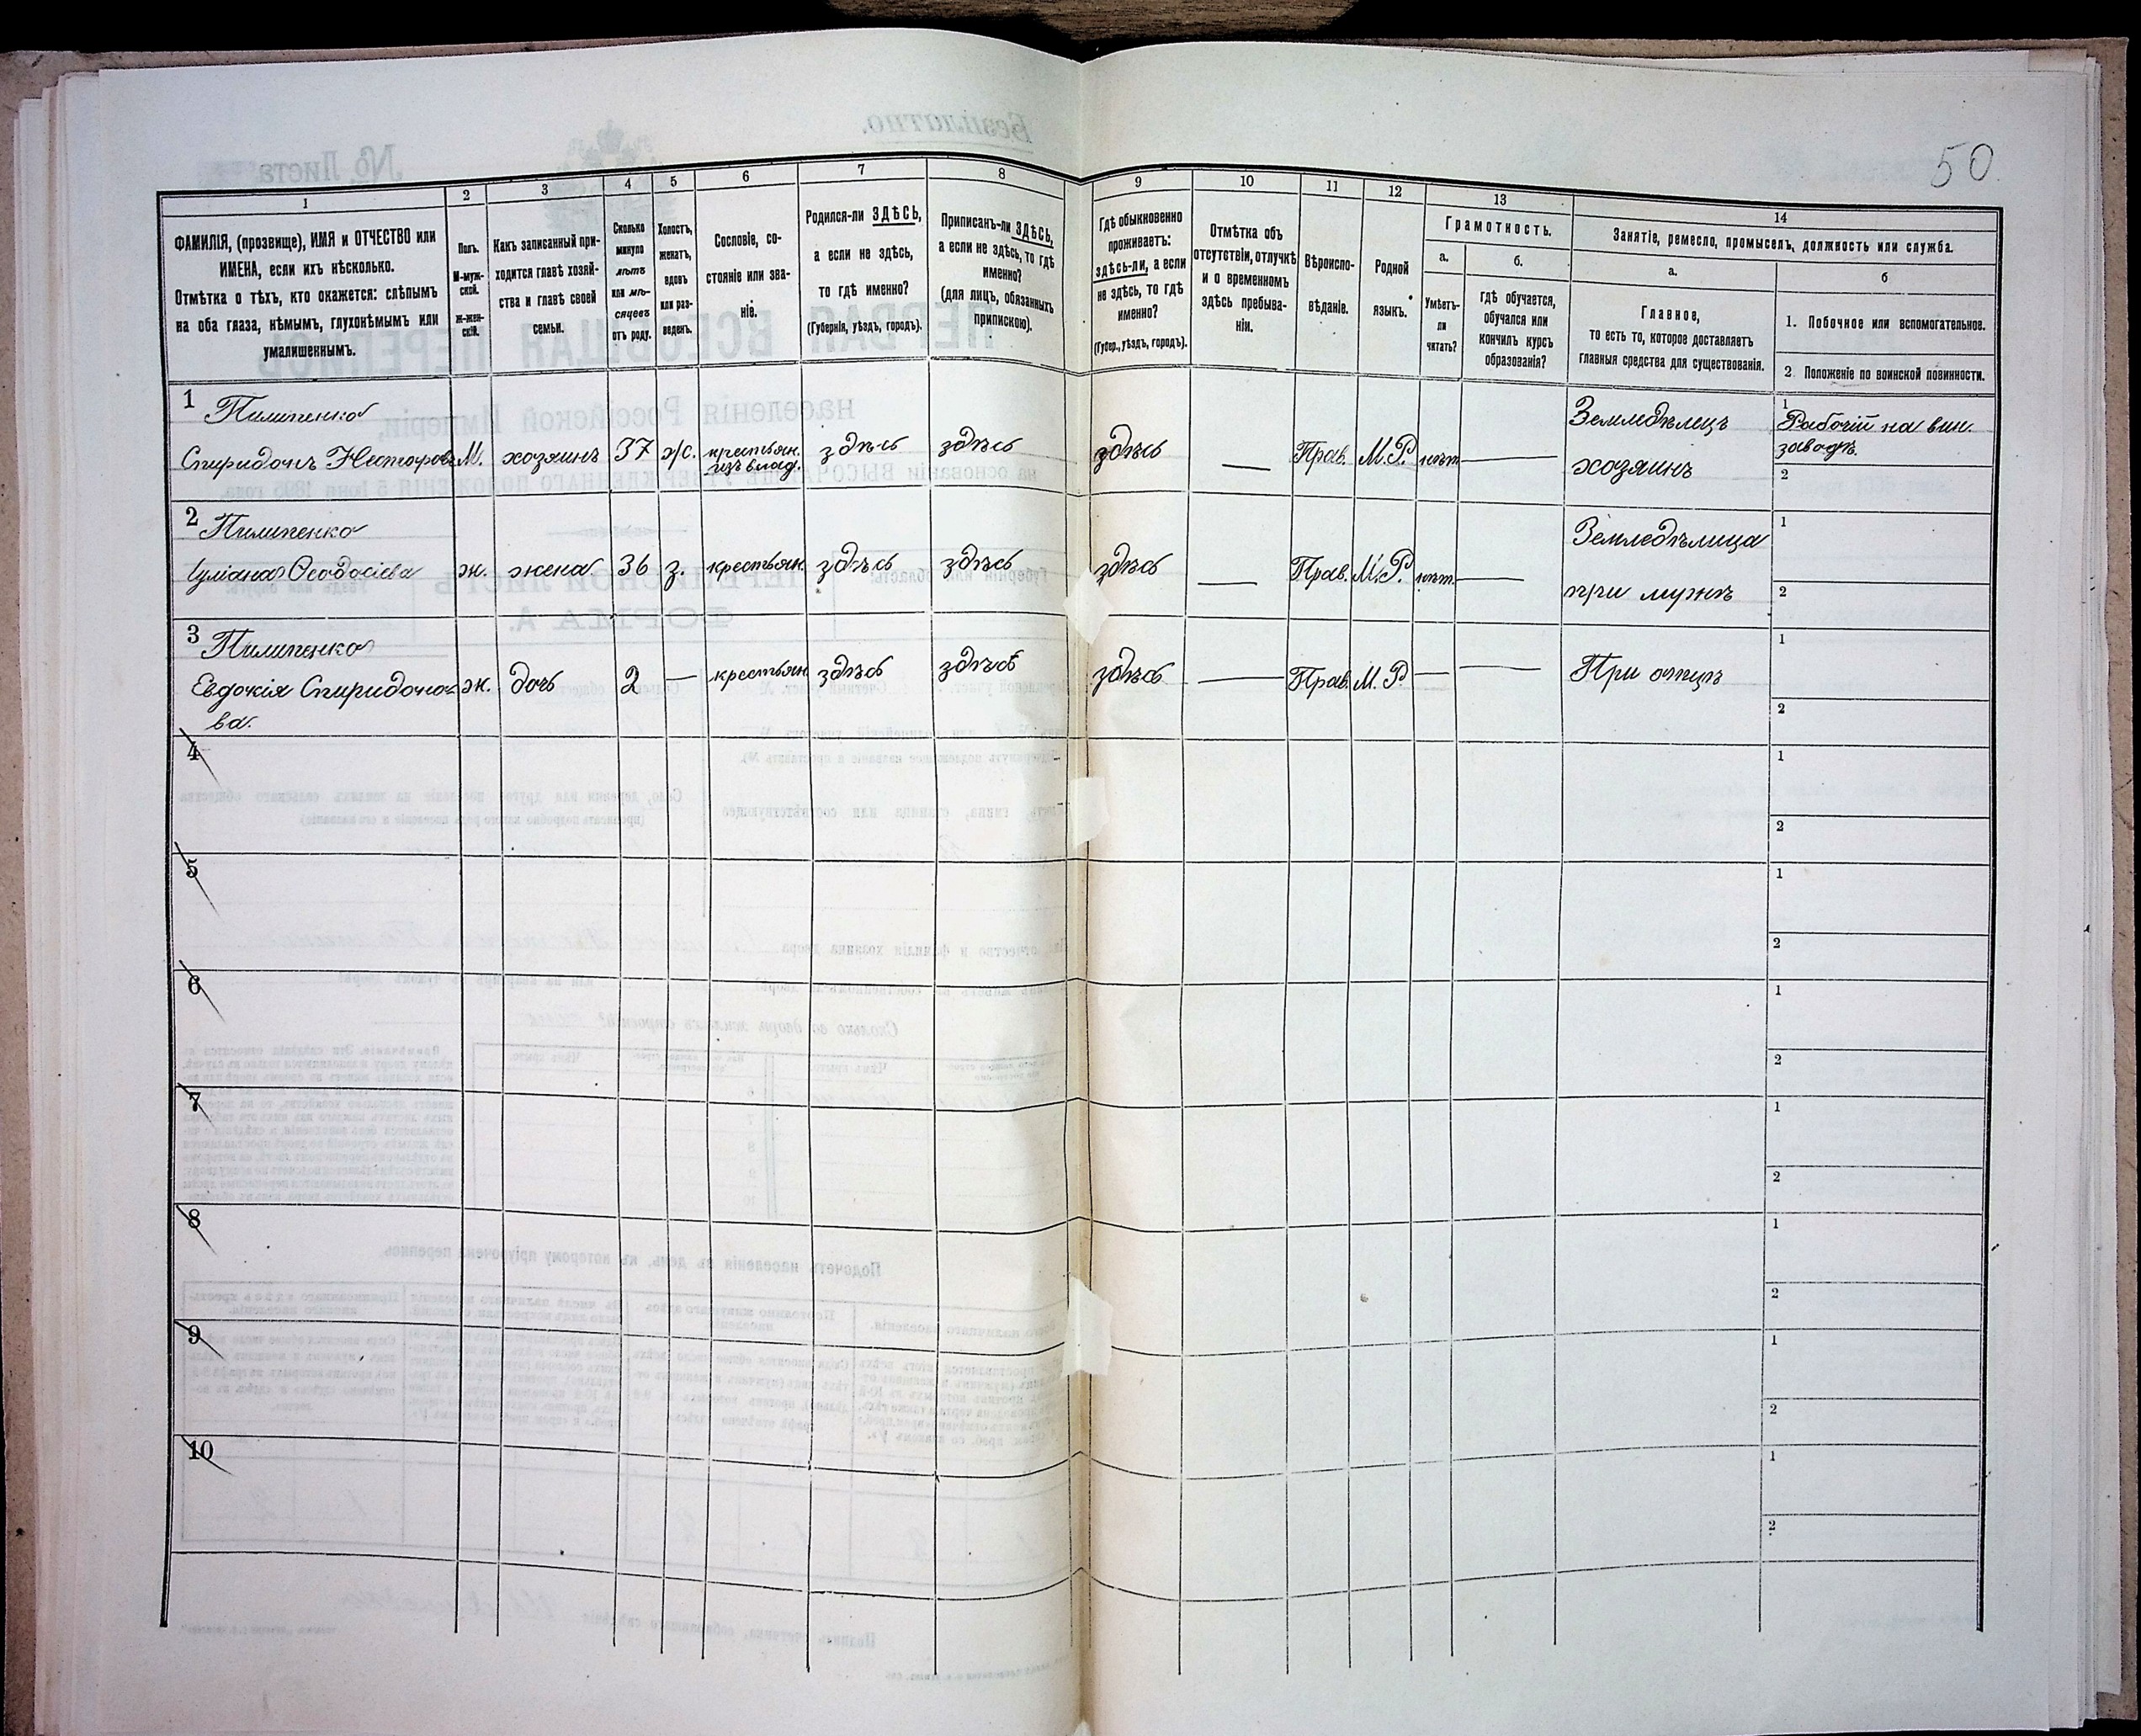 50.
1
2
3
4
5
6
7
8
9
10
11
12
13
14
ФАМИЛІЯ, (прозвище), ИМЯ и ОТЧЕСТВО или
ИМЕНА, если ихъ нѣсколько.
Отмѣтка о тѣхъ, кто окажется: слѣпымъ
на оба глаза, нѣмымъ, глухонѣмымъ или
умалишеннымъ.
Полъ.
М-муж-
ской.
Ж-жен-
скій.
Какъ записанный при-
ходится главѣ хозяй-
ства и главѣ своей
семьи.
Сколько
минуло
лѣтъ
или мѣ-
сяцевъ
отъ роду.
Холостъ,
женатъ,
вдовъ
или раз-
веденъ.
Сословіе, со-
стояніе или зва-
ніе.
Родился-ли ЗДѢСЬ,
а если не здѣсь,
то гдѣ именно?
(Губернія, уѣздъ, городъ).
Приписанъ-ли ЗДѢСЬ,
а если не здѣсь, то гдѣ
именно?
(для лицъ, обязанныхъ
припискою).
Гдѣ обыкновенно
проживаетъ:
здѣсь-ли, а если
не здѣсь, то гдѣ
именно?
(Губер., уѣздъ, городъ).
Отмѣтка объ
отсутствіи, отлучкѣ
и о временномъ
здѣсь пребыва-
ніи.
Вѣроиспо-
вѣданіе.
Родной
языкъ.
Грамотность.
а.
Умѣетъ-
ли
читать?
б.
Гдѣ обучается,
обучался или
кончилъ курсъ
образованія?
Занятіе, ремесло, промыселъ, должность или служба.
а.
Главное,
то есть то, которое доставляетъ
главныя средства для существованія.
б
1. Побочное или вспомогательное.
2 Положеніе по воинской повинности.
1 Пилипенко
Спиридонъ Несторовъ М. хозяинъ 37 ж. крестьян. здѣсь здѣсь здѣсь — Прав. М.Р. нѣтъ —
изъ влад.
Земледѣлецъ
хозяинъ
1
Рабочій на вин.
заводѣ.
2
2 Пилипенко
Уліана Ѳеодосіева ж. жена 36 з. крестьян. здѣсь здѣсь здѣсь — Прав. М.Р. нѣтъ —
Земледѣлица
при мужѣ
1
2
3 Пилипенко
Евдокія Спиридоно- ж. дочь 2 — крестьян. здѣсь здѣсь здѣсь — Прав. М.Р. — — При отцѣ
ва.
1
2
4
1
2
5
1
2
6
1
2
7
1
2
8
1
2
9
1
2
10
1
2